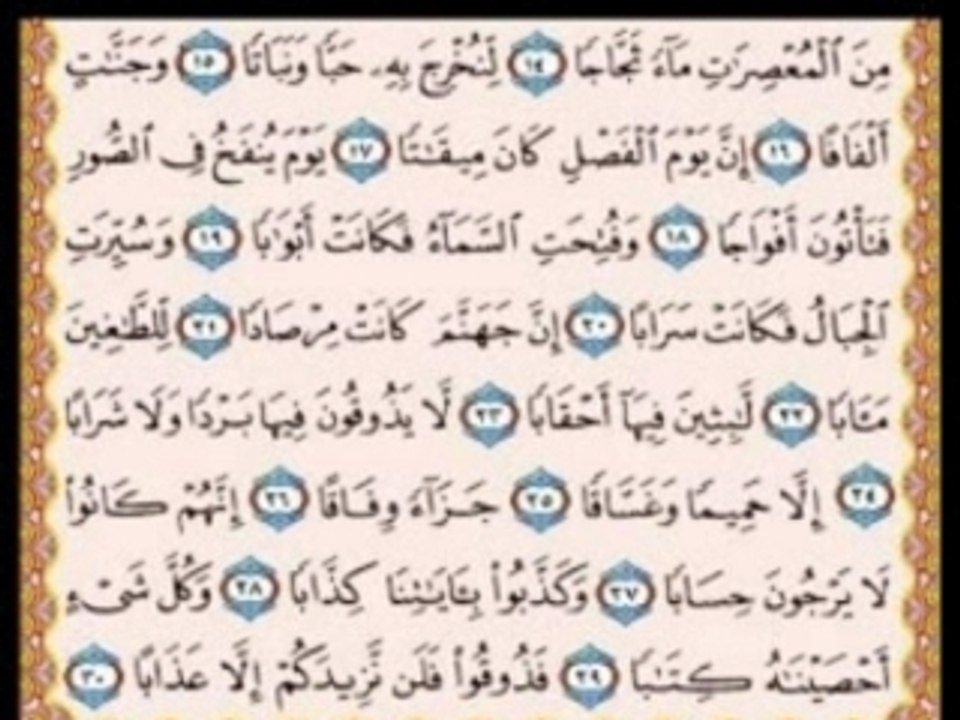 مِنَ ٱلْمُعْصِرَٰتِ مَآءً ثَجَّاجًا ١٤ لِّنُخْرِجَ بِهِۦ حَبًّا وَنَبَاتًا ١٥ وَجَنَّـٰتٍ
أَلْفَافًا ١٦ إِنَّ يَوْمَ ٱلْفَصْلِ كَانَ مِيقَـٰتًا ١٧ يَوْمَ يُنفَخُ فِى ٱلصُّورِ
فَتَأْتُونَ أَفْوَاجًا ١٨ وَفُتِحَتِ ٱلسَّمَآءُ فَكَانَتْ أَبْوَٰبًا ١٩ وَسُيِّرَتِ
ٱلْجِبَالُ فَكَانَتْ سَرَابًا ٢٠ إِنَّ جَهَنَّمَ كَانَتْ مِرْصَادًا ٢١ لِّلطَّـٰغِينَ
مَـَٔابًا ٢٢ لَّـٰبِثِينَ فِيهَآ أَحْقَابًا ٢٣ لَّا يَذُوقُونَ فِيهَا بَرْدًا وَلَا شَرَابًا
٢٤ إِلَّا حَمِيمًا وَغَسَّاقًا ٢٥ جَزَآءً وِفَاقًا ٢٦ إِنَّهُمْ كَانُوا۟
لَا يَرْجُونَ حِسَابًا ٢٧ وَكَذَّبُوا۟ بِـَٔايَـٰتِنَا كِذَّابًا ٢٨ وَكُلَّ شَىْءٍ
أَحْصَيْنَـٰهُ كِتَـٰبًا ٢٩ فَذُوقُوا۟ فَلَن نَّزِيدَكُمْ إِلَّا عَذَابًا ٣٠